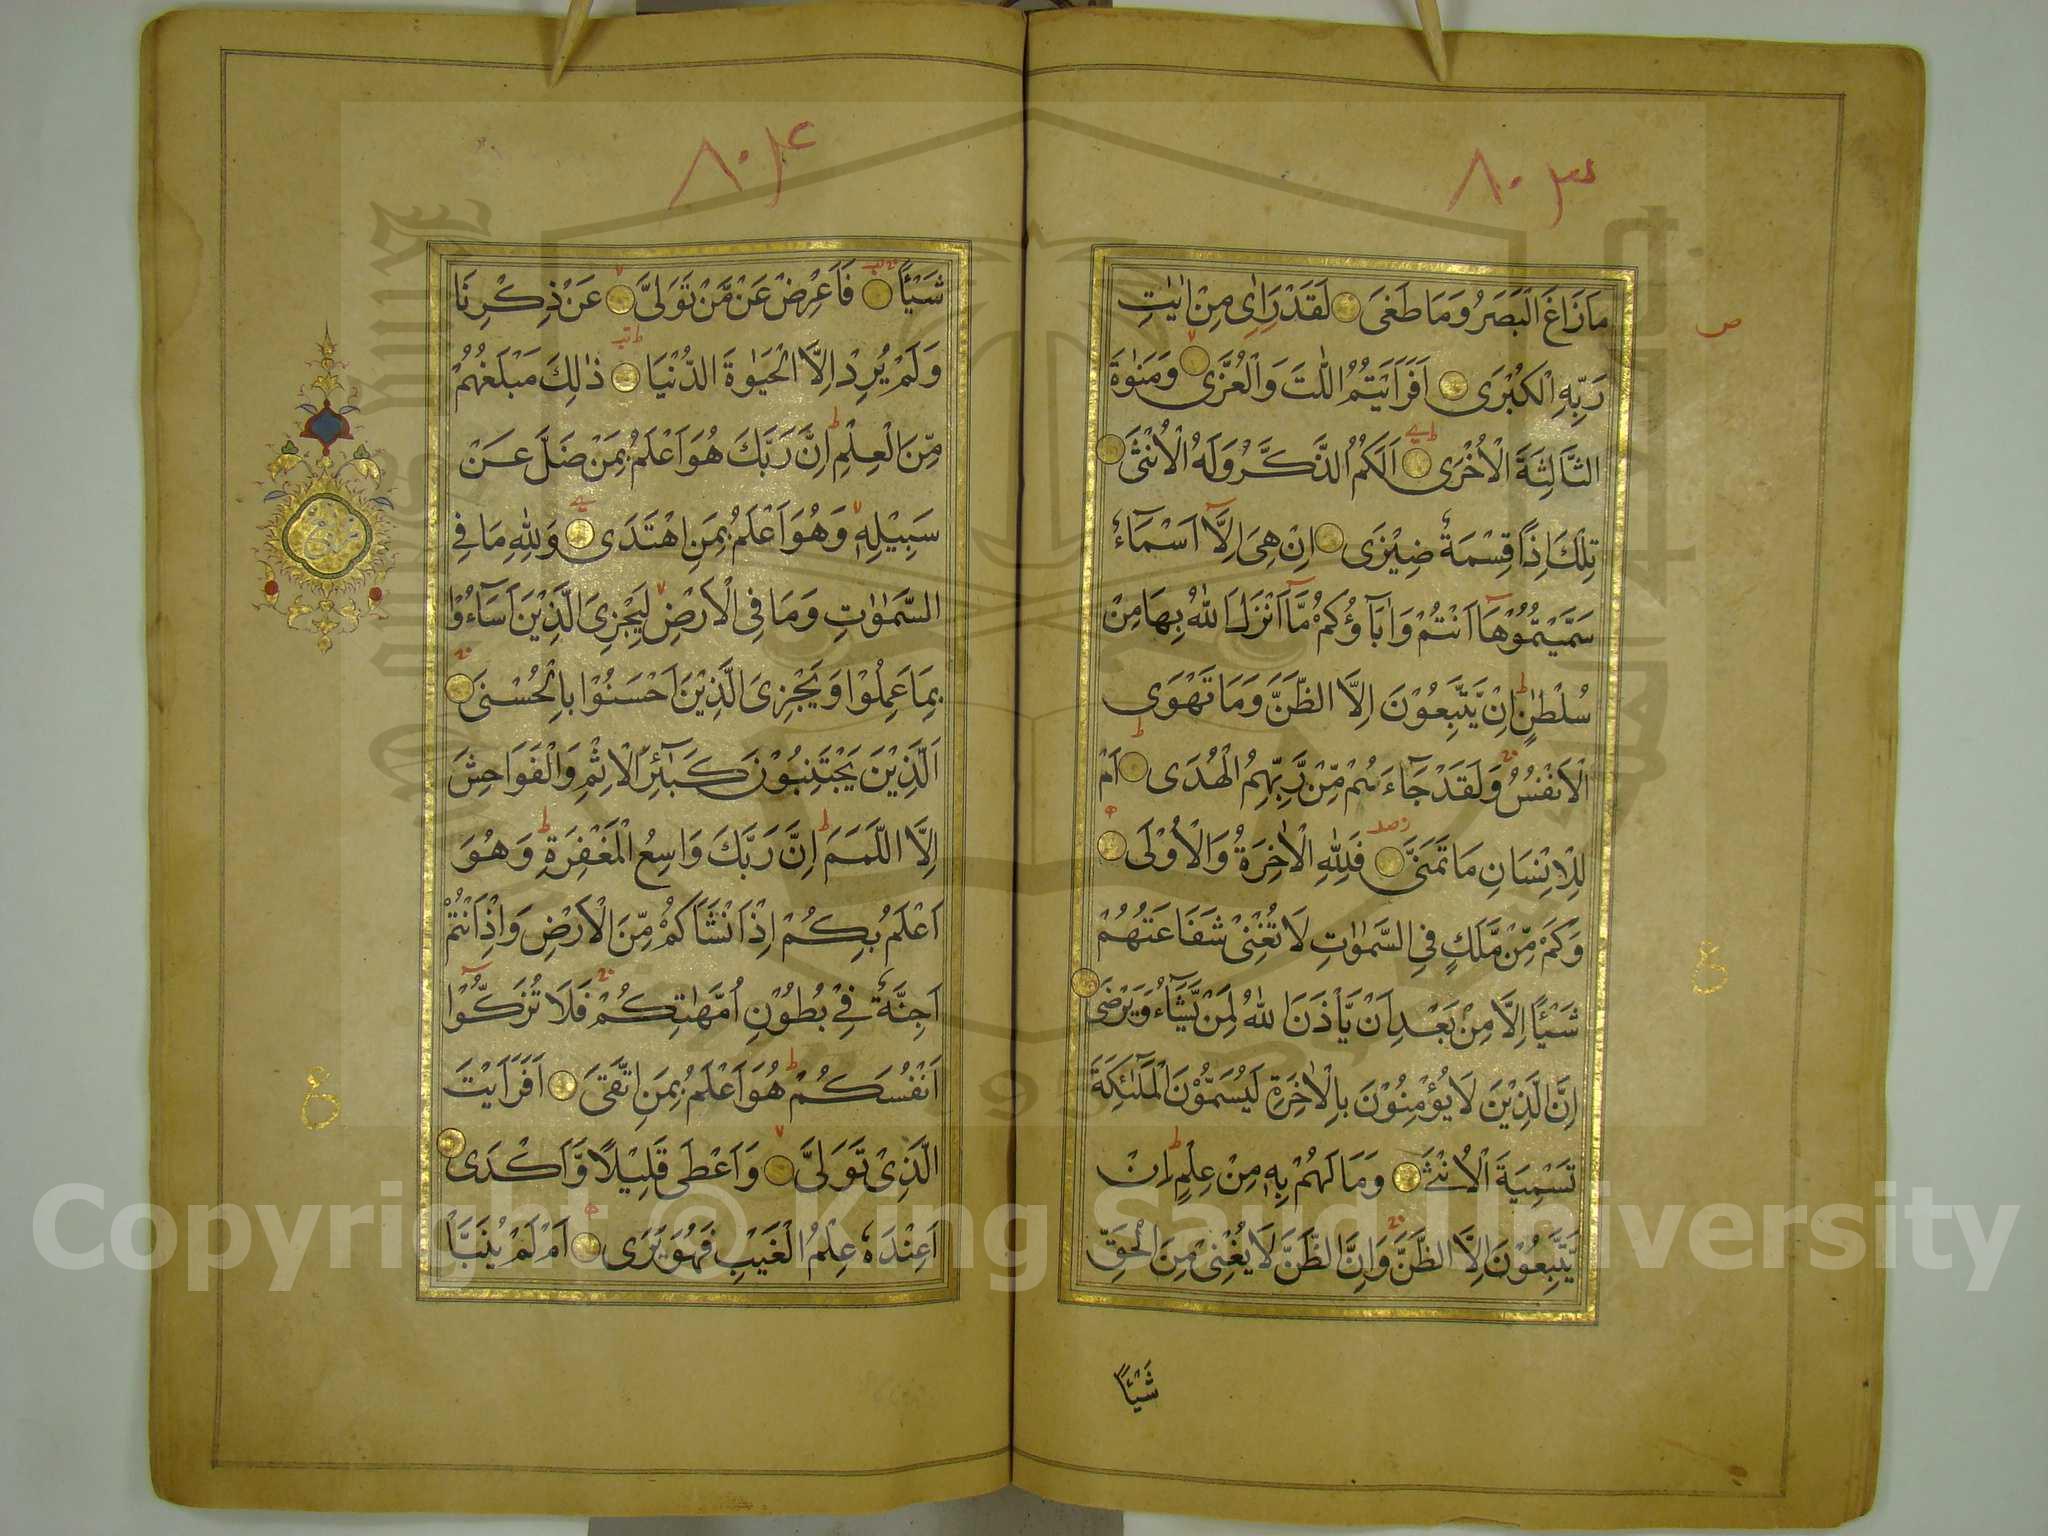 ٨٠٣
مَا زَاغَ الْبَصَرُ وَمَا طَغٰى لَقَدْ رَاٰى مِنْ اٰيٰتِ
رَبِّهِ الْكُبْرٰى اَفَرَاَيْتُمُ اللّٰتَ وَالْعُزّٰى وَمَنٰوةَ
الثَّالِثَةَ الْاُخْرٰى اَلَكُمُ الذَّكَرُ وَلَهُ الْاُنْثٰى
تِلْكَ اِذًا قِسْمَةٌ ضِيْزٰى اِنْ هِيَ اِلَّا اَسْمَآءٌ
سَمَّيْتُمُوْهَا اَنْتُمْ وَاٰبَآؤُكُمْ مَّا اَنْزَلَ اللّٰهُ بِهَا مِنْ
سُلْطٰنٍ اِنْ يَّتَّبِعُوْنَ اِلَّا الظَّنَّ وَمَا تَهْوَى
الْاَنْفُسُ وَلَقَدْ جَآءَهُمْ مِّنْ رَّبِّهِمُ الْهُدٰى اَمْ
لِلْاِنْسَانِ مَا تَمَنّٰى فَلِلّٰهِ الْاٰخِرَةُ وَالْاُوْلٰى
وَكَمْ مِّنْ مَّلَكٍ فِي السَّمٰوٰتِ لَا تُغْنِيْ شَفَاعَتُهُمْ
شَيْـًٔا اِلَّا مِنْ بَعْدِ اَنْ يَّاْذَنَ اللّٰهُ لِمَنْ يَّشَآءُ وَيَرْضٰى
اِنَّ الَّذِيْنَ لَا يُؤْمِنُوْنَ بِالْاٰخِرَةِ لَيُسَمُّوْنَ الْمَلٰٓئِكَةَ
تَسْمِيَةَ الْاُنْثٰى وَمَا لَهُمْ بِهٖ مِنْ عِلْمٍ اِنْ
يَّتَّبِعُوْنَ اِلَّا الظَّنَّ وَاِنَّ الظَّنَّ لَا يُغْنِيْ مِنَ الْحَقِّ
شَيْـًٔا
٨٠٤
شَيْـًٔا فَاَعْرِضْ عَنْ مَّنْ تَوَلّٰى عَنْ ذِكْرِنَا
وَلَمْ يُرِدْ اِلَّا الْحَيٰوةَ الدُّنْيَا ذٰلِكَ مَبْلَغُهُمْ
مِّنَ الْعِلْمِ اِنَّ رَبَّكَ هُوَ اَعْلَمُ بِمَنْ ضَلَّ عَنْ
سَبِيْلِهٖ وَهُوَ اَعْلَمُ بِمَنِ اهْتَدٰى وَلِلّٰهِ مَا فِي
السَّمٰوٰتِ وَمَا فِي الْاَرْضِ لِيَجْزِيَ الَّذِيْنَ اَسَآءُوْا
بِمَا عَمِلُوْا وَيَجْزِيَ الَّذِيْنَ اَحْسَنُوْا بِالْحُسْنٰى
اَلَّذِيْنَ يَجْتَنِبُوْنَ كَبٰٓئِرَ الْاِثْمِ وَالْفَوَاحِشَ
اِلَّا اللَّمَمَ اِنَّ رَبَّكَ وَاسِعُ الْمَغْفِرَةِ وَهُوَ
اَعْلَمُ بِكُمْ اِذْ اَنْشَاَكُمْ مِّنَ الْاَرْضِ وَاِذْ اَنْتُمْ
اَجِنَّةٌ فِيْ بُطُوْنِ اُمَّهٰتِكُمْ فَلَا تُزَكُّوْا
اَنْفُسَكُمْ هُوَ اَعْلَمُ بِمَنِ اتَّقٰى اَفَرَاَيْتَ
الَّذِيْ تَوَلّٰى وَاَعْطٰى قَلِيْلًا وَّاَكْدٰى
اَعِنْدَهٗ عِلْمُ الْغَيْبِ فَهُوَ يَرٰى اَمْ لَمْ يُنَبَّاْ
Copyright © King Saud University